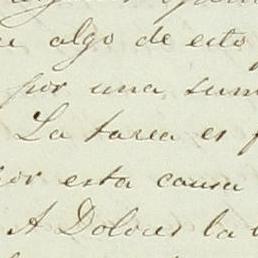 algo de esto
por una sum
La tarea es f
por esta causa
A Dolores la